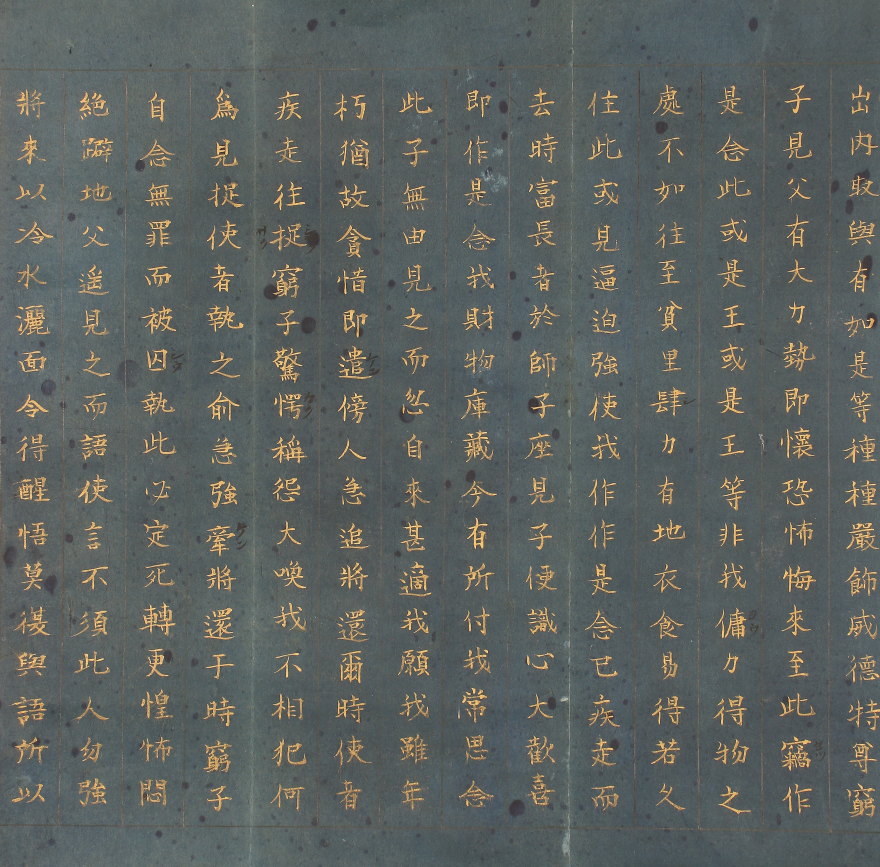 出内取與有如是等種種嚴飾威德特尊窮
子見父有大力勢即懷恐怖悔來至此竊作
是念此或是王或是王等非我傭力得物之
處不如往至貧里肆力有地衣食易得若久
住此或見逼迫強使我作作是念已疾走而
去時富長者於師子座見子便識心大歡喜
即作是念我財物庫藏今有所付我常思念
此子無由見之而忽自來甚適我願我雖年
朽猶故貪惜即遣傍人急追將還爾時使者
疾走往捉窮子驚愕稱怨大喚我不相犯何
為見捉使者執之俞急強牽將還于時窮子
自念無罪而被囚執此必定死轉更惶怖悶
絶躃地父遥見之而語使言不須此人勿強
將來以冷水灑面令得醒悟莫復與語所以